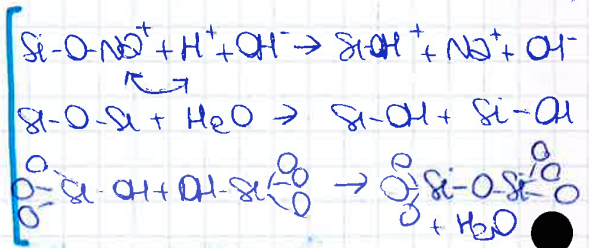 Si-O-Na⁺ + H⁺ + OH⁻ → Si-OH⁺ + Na⁺ + OH⁻
Si-O-Si + H₂O → Si-OH + Si-OH
O O O Si-OH + OH-Si O O O → O O O Si-O-Si O O O
+ H₂O